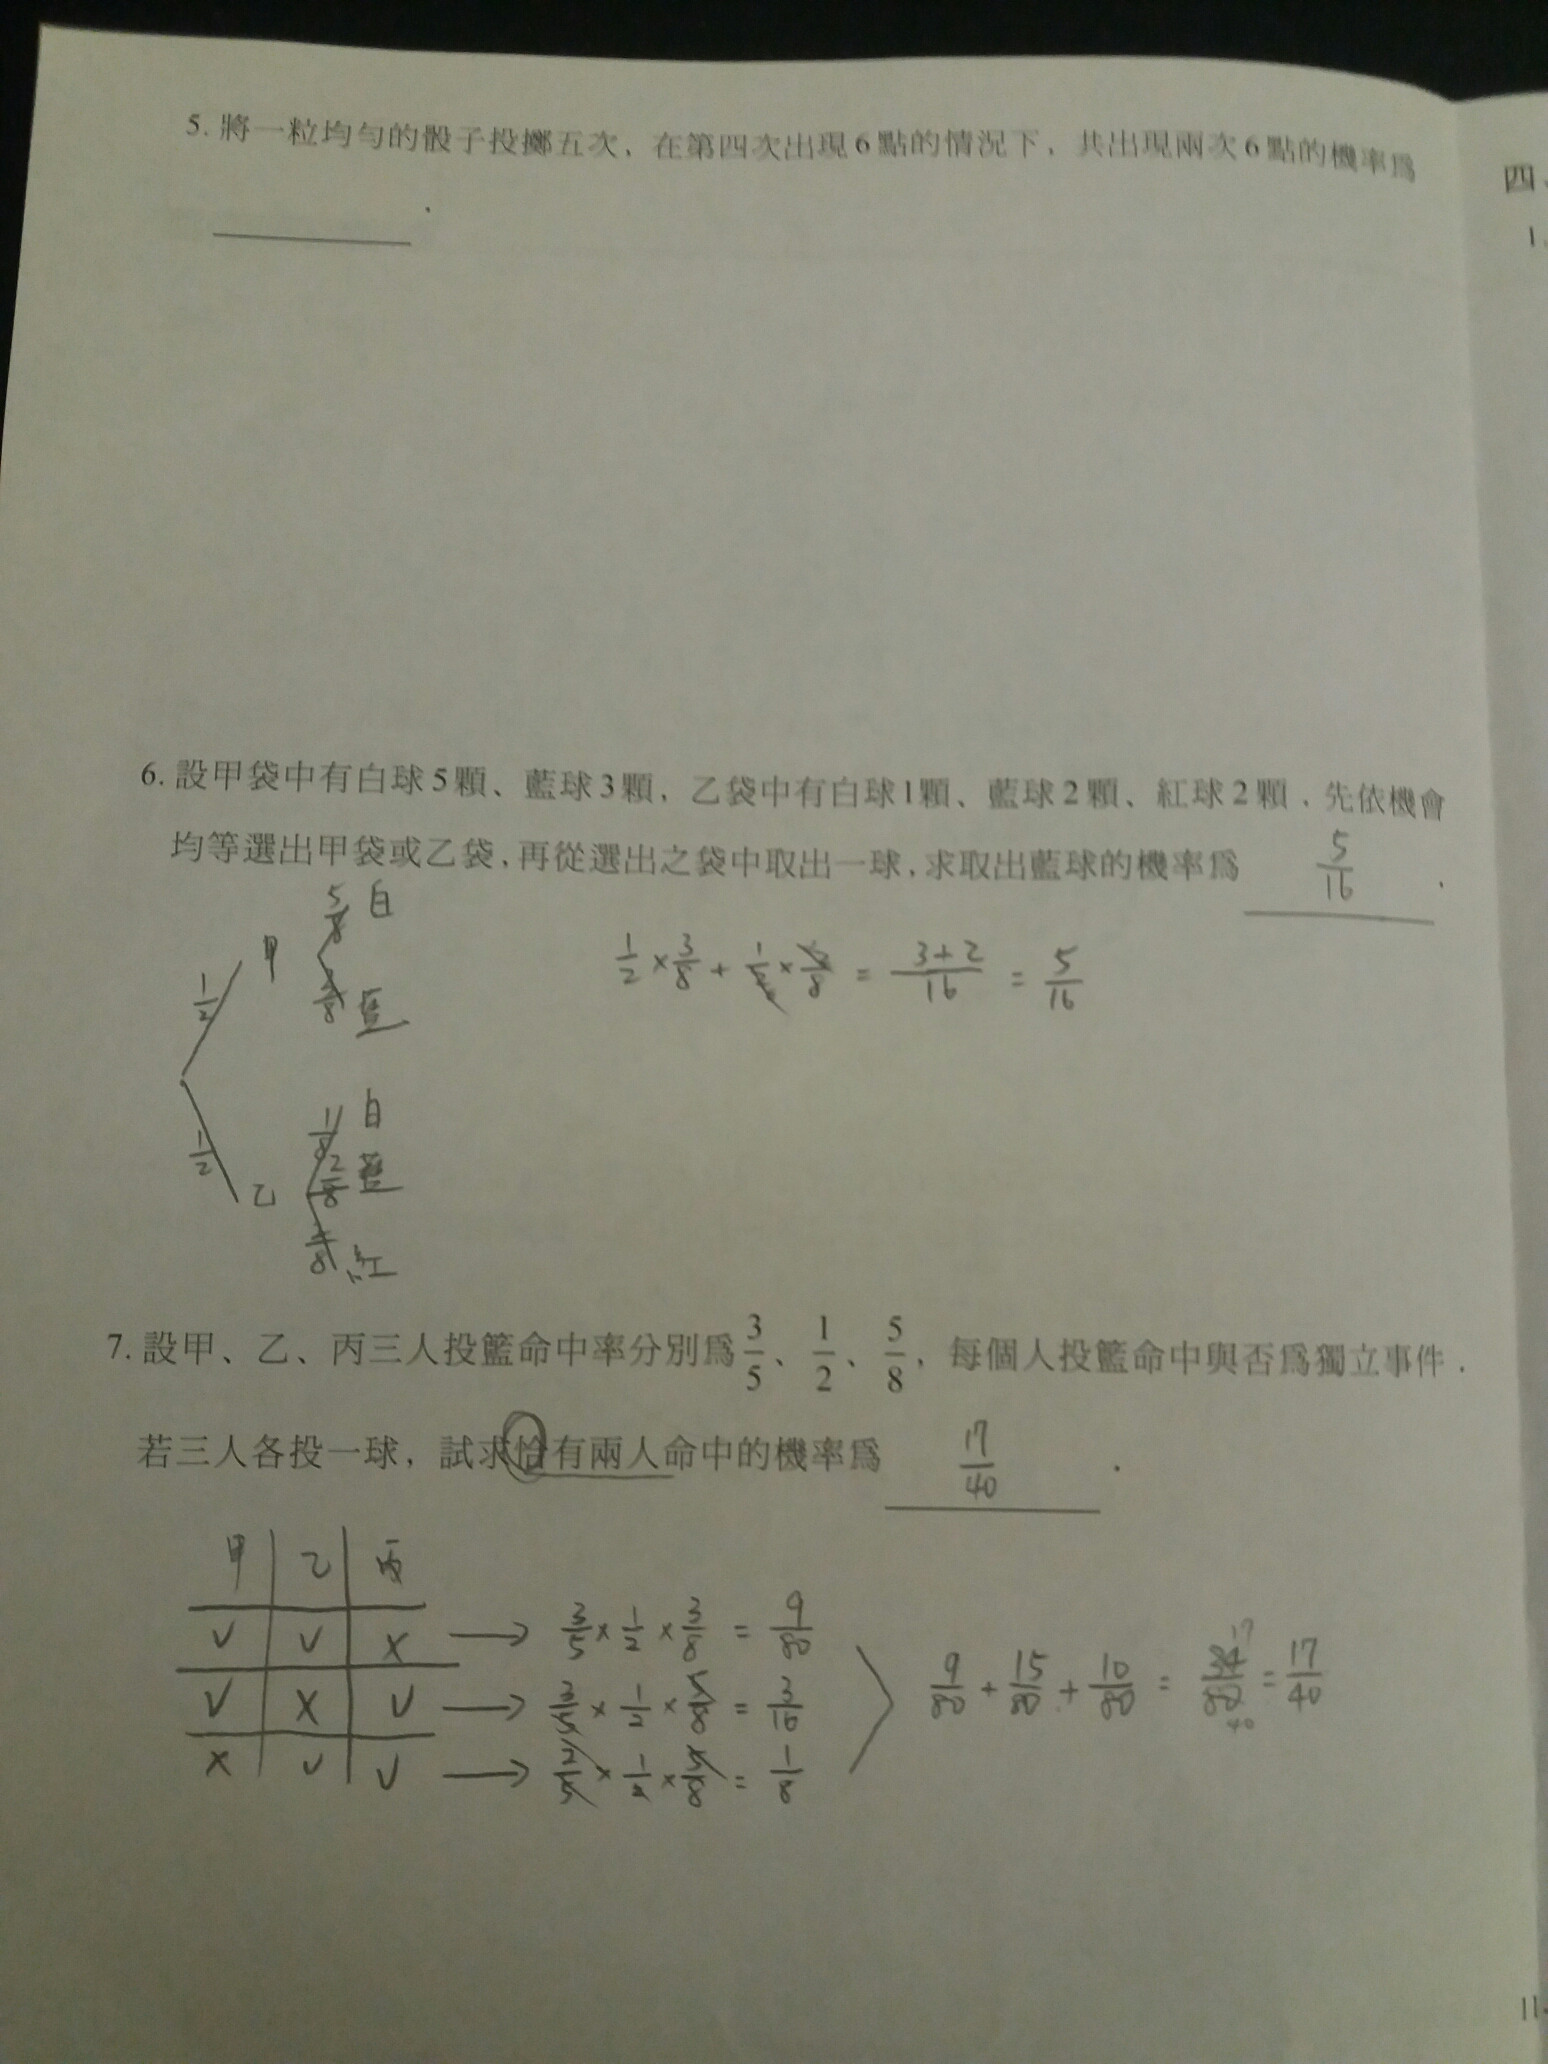 5. 將一粒均勻的骰子投擲五次，在第四次出現6點的情況下，共出現兩次6點的機率為
四、
1.
6. 設甲袋中有白球5顆、藍球3顆，乙袋中有白球1顆、藍球2顆、紅球2顆．先依機會
均等選出甲袋或乙袋，再從選出之袋中取出一球，求取出藍球的機率為 5/16 ．
1/2 甲 5/8 白
3/8 藍
1/2 乙 1/8 白
2/8 藍
2/8 紅
1/2 × 3/8 + 1/2 × 2/8 = 3+2/16 = 5/16
7. 設甲、乙、丙三人投籃命中率分別為 3/5、1/2、5/8，每個人投籃命中與否為獨立事件．
若三人各投一球，試求恰有兩人命中的機率為 17/40 ．
甲 乙 丙
V V X → 3/5 × 1/2 × 3/8 = 9/80
V X V → 3/5 × 1/2 × 5/8 = 3/16
X V V → 2/5 × 1/2 × 5/8 = 1/8
9/80 + 15/80 + 10/80 = 34/80 = 17/40
17
40
11-